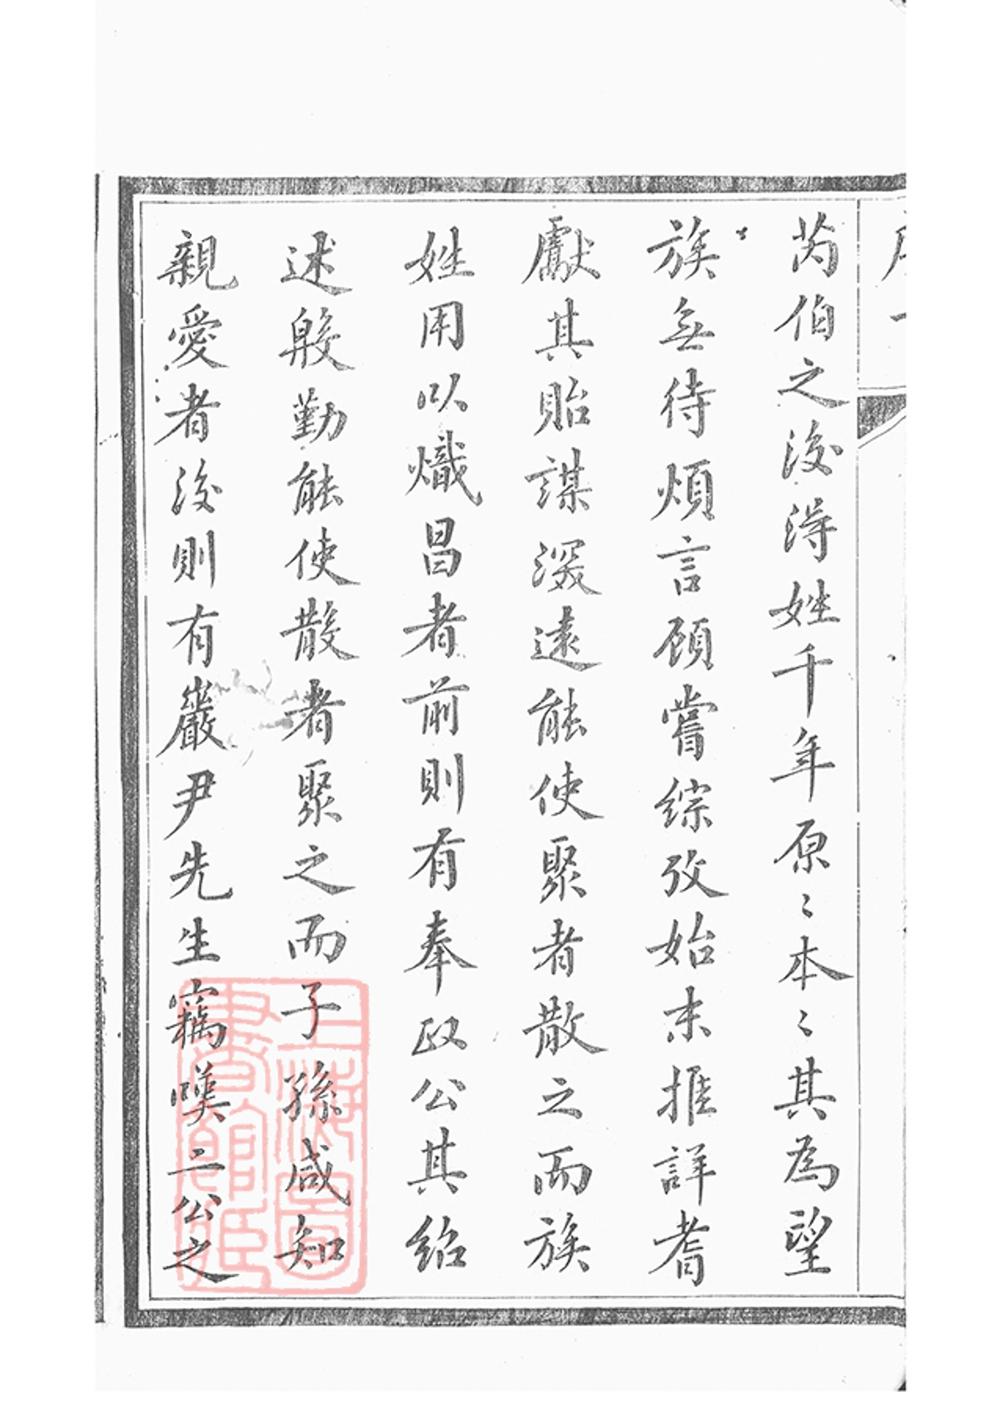 芮伯之後得姓千年原〻本〻其為望
族無待煩言顧嘗綜攷始末推詳耆
獻其貽謀深遠能使聚者散之而族
姓用以熾昌者前則有奉政公其紹
述殷勤能使散者聚之而子孫咸知
親愛者後則有巖尹先生竊嘆二公之
上海圖
書館藏